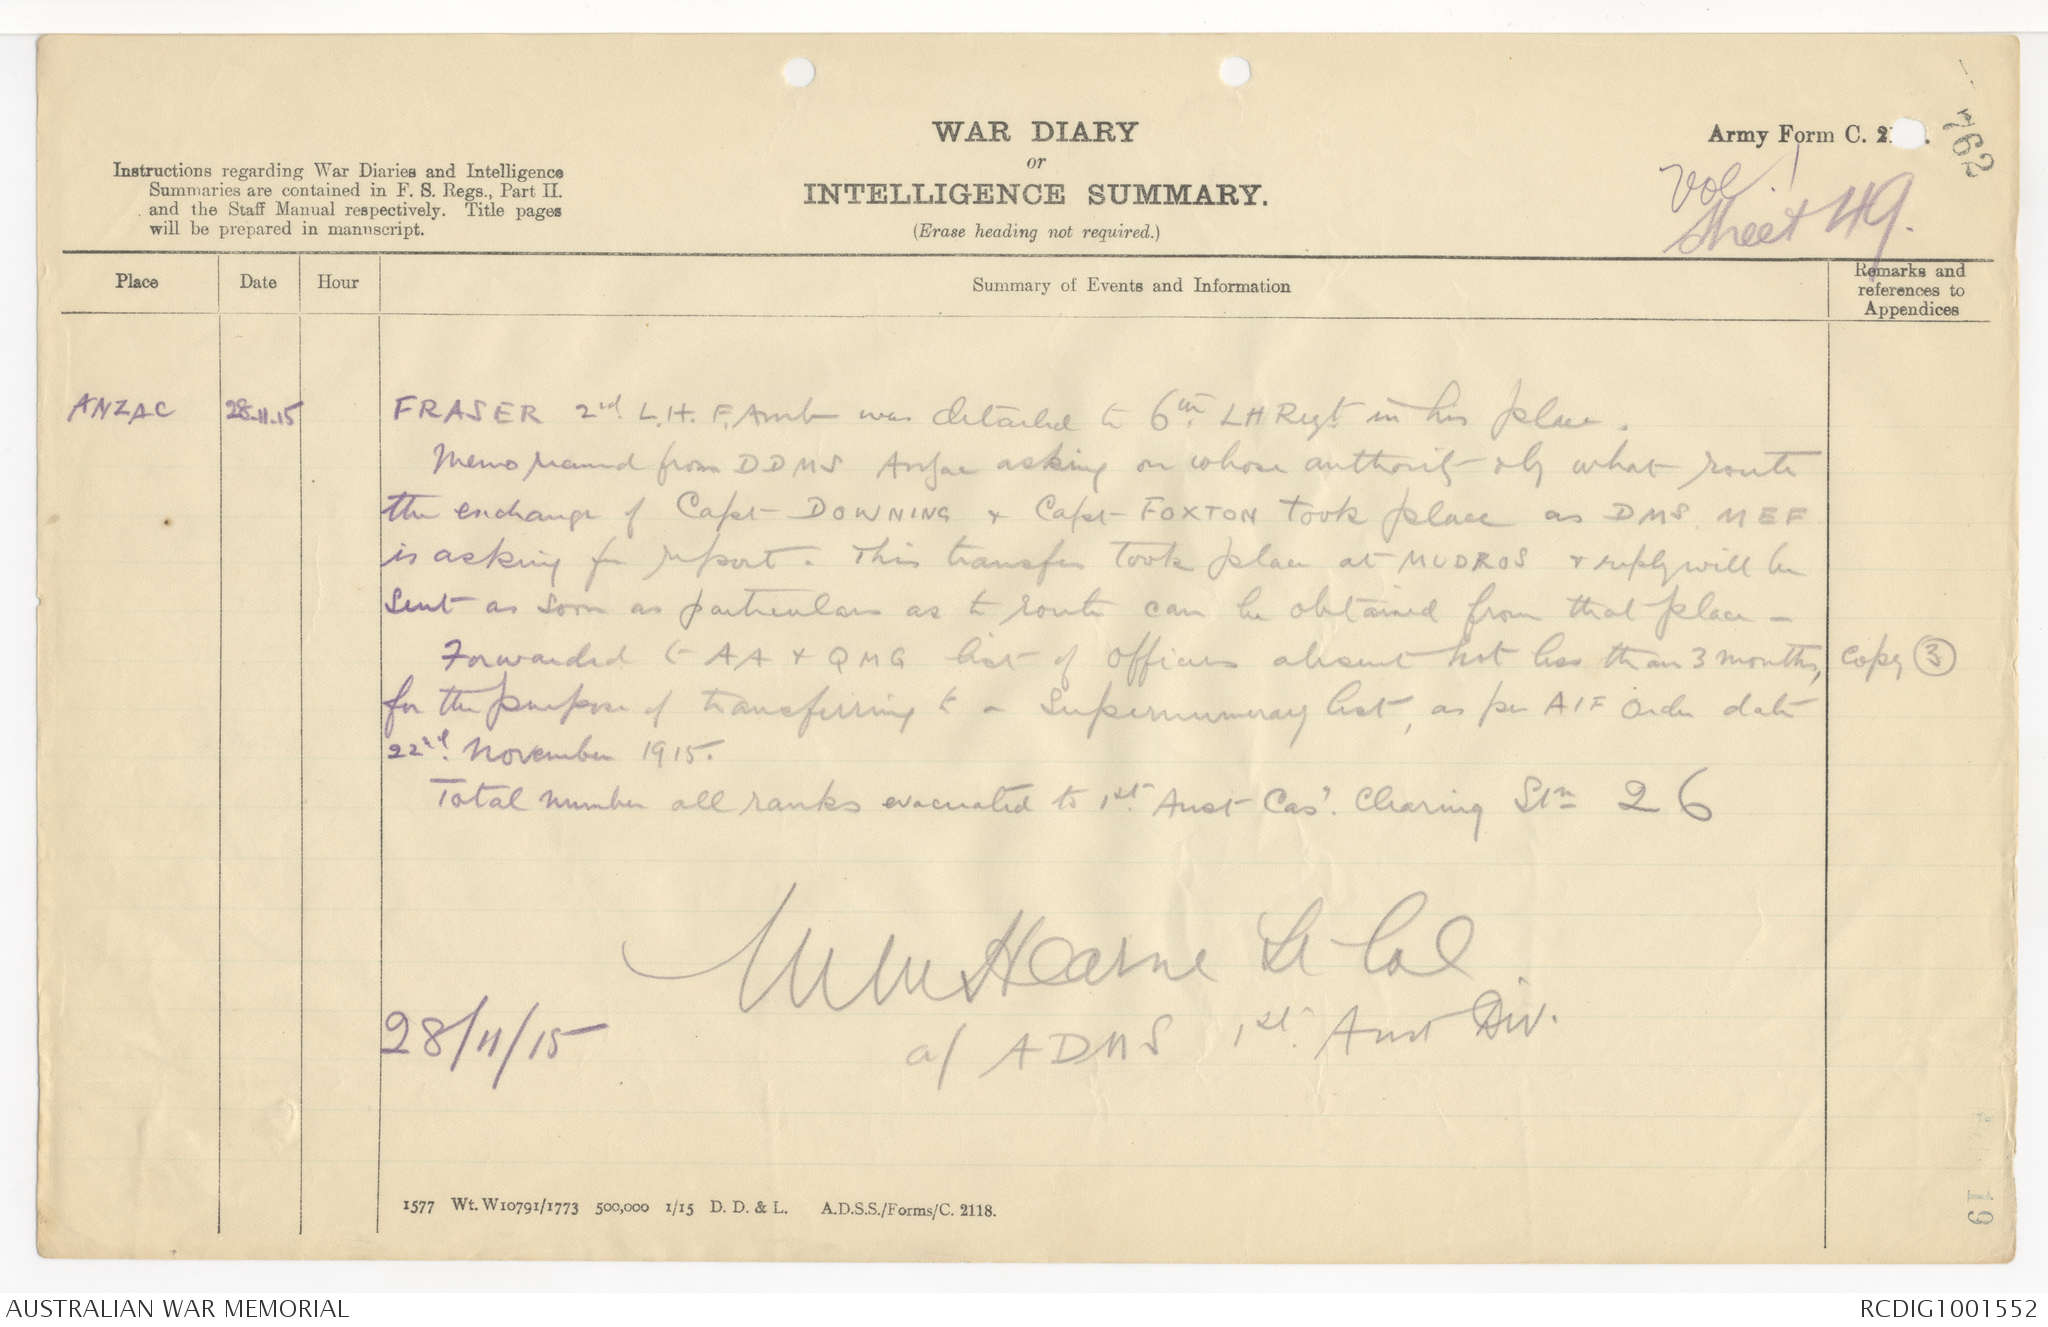 WAR DIARY
or
INTELLIGENCE SUMMARY.
(Erase heading not required.)
Instructions regarding War Diaries and Intelligence
Summaries are contained in F. S. Regs., Part II.
and the Staff Manual respectively. Title pages
will be prepared in manuscript.
Army Form C.
762
Vol. 1
Sheet 49.
Place Date Hour Summary of Events and Information Remarks and references to Appendices
ANZAC 28.11.15 FRASER 2nd. L.H. F. Amb was detailed to 6th. LH Regt in his place.
Memo received from DDMS Anzac asking on whose authority & by what route
the exchange of Capt DOWNING & Capt FOXTON took place as DMS. MEF
is asking for report. This transfer took place at MUDROS & reply will be
sent as soon as particulars as to route can be obtained from that place -
Forwarded to AA & QMG list of officers absent not less than 3 months, copy 3
for the purpose of transferring to a Supernumeray list, as per AIF Order date
22nd. November 1915.
Total number all ranks evacuated to 1st. Aust Cas'. Clearing Stn 26
Hearne Lt Col.
28/11/15
a/ ADMS 1st. Aust Div.
1577 Wt. W10791/1773 500,000 1/15 D. D. & L. A.D.S.S./Forms/C. 2118.
19
AUSTRALIAN WAR MEMORIAL
RCDIG1001552